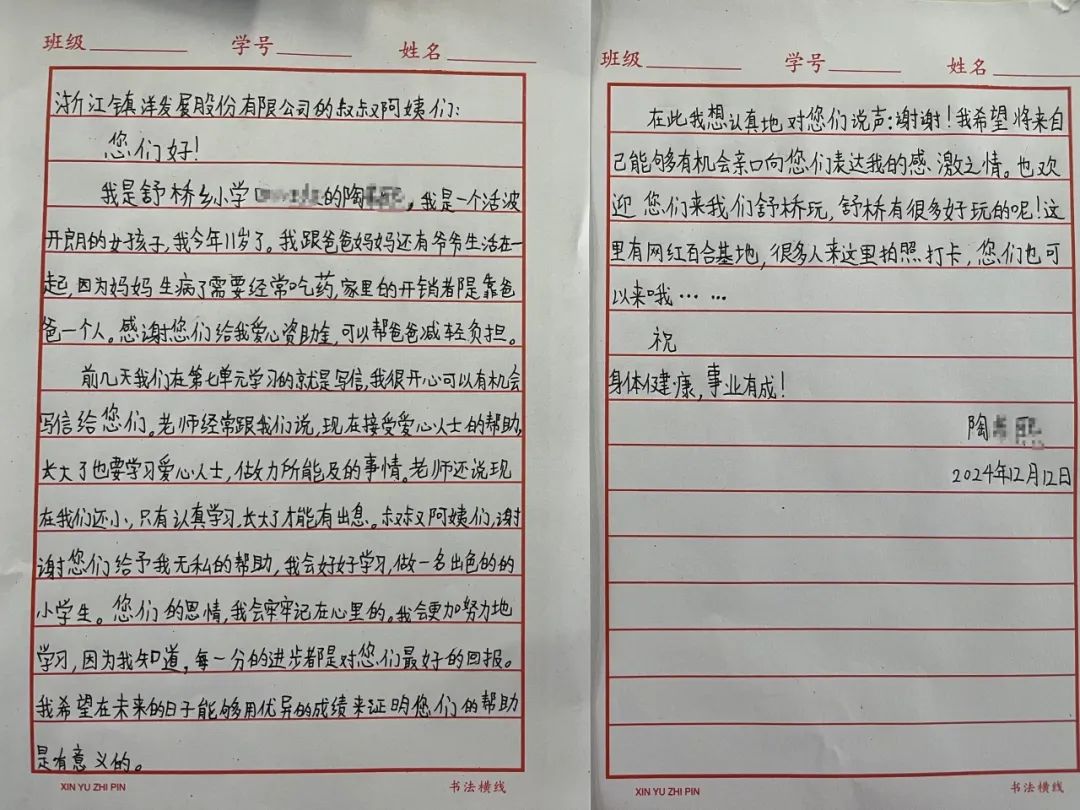 班级 学号 姓名
浙江镇洋发展股份有限公司的叔叔阿姨们:
您们好!
我是舒桥乡小学 的陶 ,我是一个活波
开朗的女孩子,我今年11岁了。我跟爸爸妈妈还有爷爷生活在一
起,因为妈妈生病了需要经常吃药,家里的开销都是靠爸
爸一个人。感谢您们给我爱心资助金,可以帮爸爸减轻负担。
前几天我们在第七单元学习的就是写信,我很开心可以有机会
写信给您们。老师经常跟我们说,现在接受爱心人士的帮助,
长大了也要学习爱心人士,做力所能及的事情。老师还说现
在我们还小,只有认真学习,长大了才能有出息。叔叔阿姨们,谢
谢您们给予我无私的帮助,我会好好学习,做一名出色的的
小学生。您们的恩情,我会牢牢记在心里的。我会更加努力地
学习,因为我知道,每一分的进步都是对您们最好的回报。
我希望在未来的日子能够用优异的成绩来证明您们的帮助
是有意义的。
XIN YU ZHI PIN 书法横线
班级 学号 姓名
在此我想认真地对您们说声:谢谢!我希望将来自
己能够有机会亲口向您们表达我的感激之情。也欢
迎您们来我们舒桥玩,舒桥有很多好玩的呢!这
里有网红百合基地,很多人来这里拍照打卡,您们也可
以来哦……
祝
身体健康,事业有成!
陶 熙
2024年12月12日
XIN YU ZHI PIN 书法横线